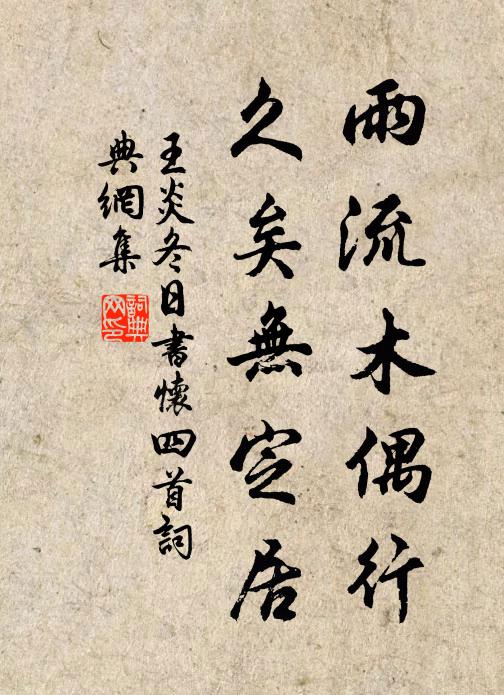 雨流木偶行
久矣無定居
王炎冬日書懷四首詞
典網集
詞典网印